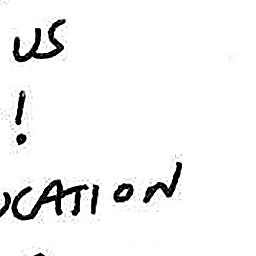 US
!
UCATION